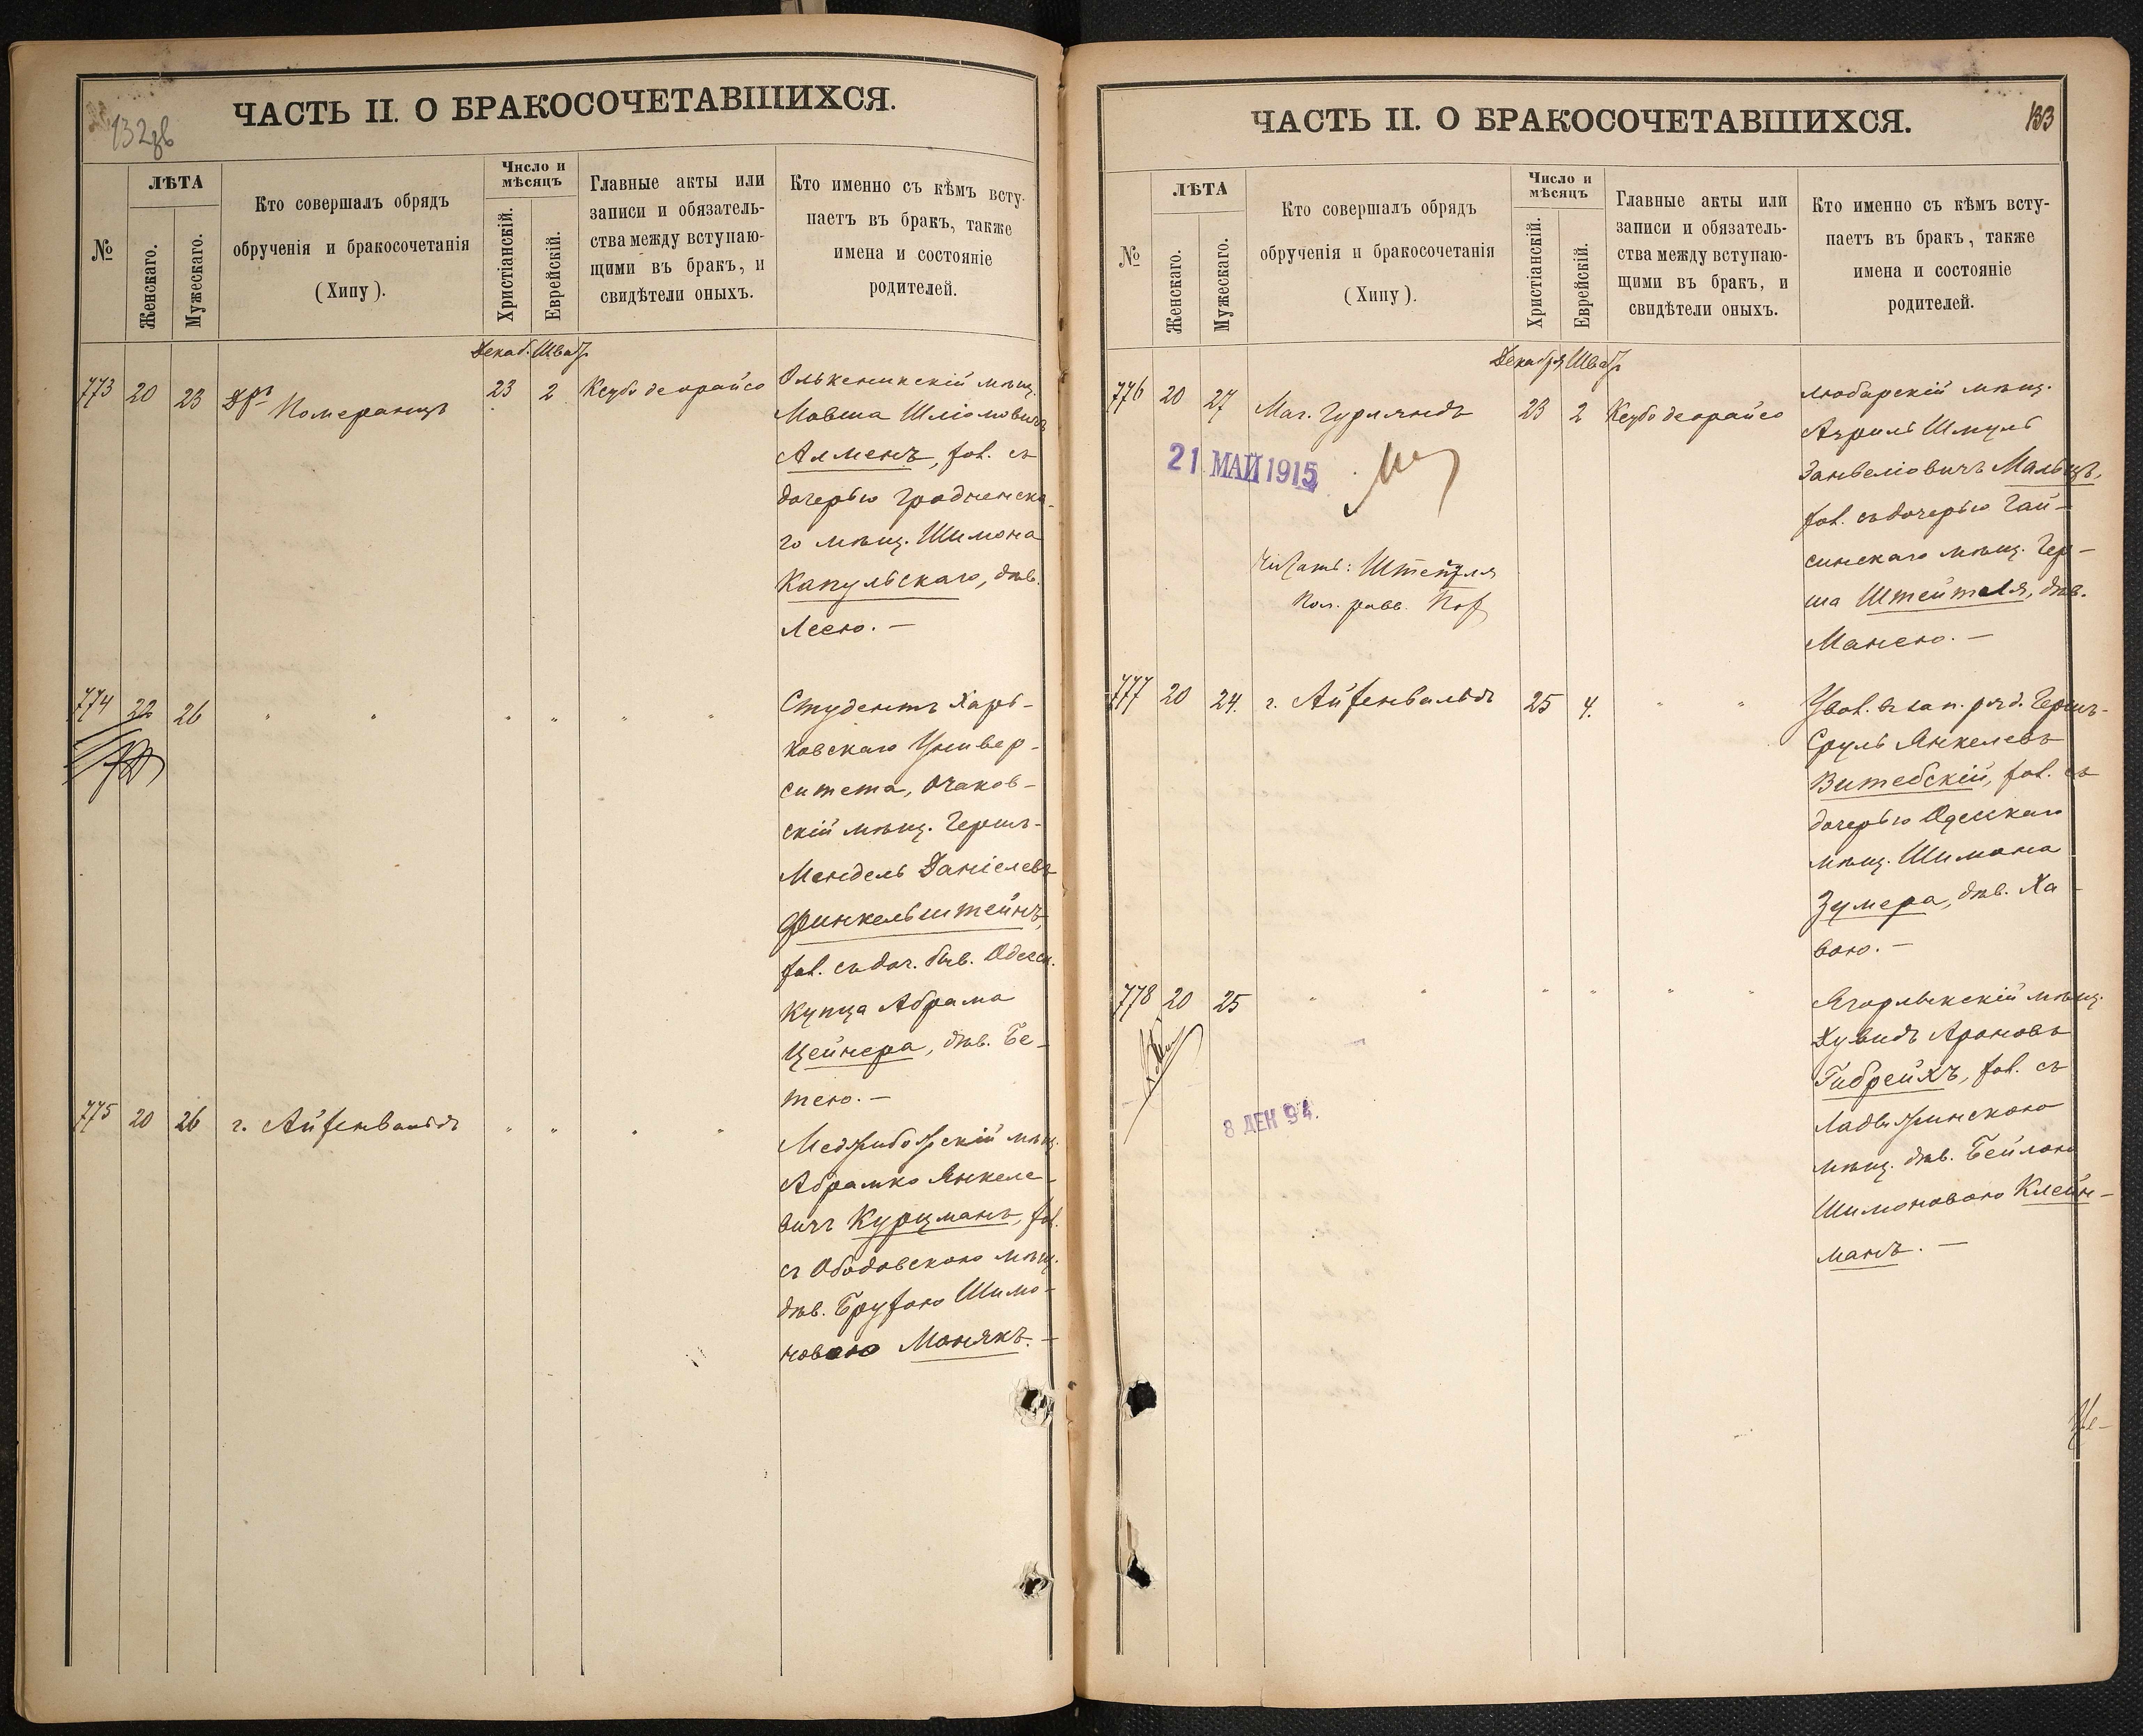 132 об
ЧАСТЬ II. О БРАКОСОЧЕТАВШИХСЯ.
№
ЛѢТА
Женскаго.
Мужескаго.
Кто совершалъ обрядъ
обрученія и бракосочетанія
(Хипу).
Число и
мѣсяцъ
Христіанскій.
Еврейскій.
Главные акты или
записи и обязатель-
ства между вступаю-
щими въ бракъ, и
свидѣтели оныхъ.
Кто именно съ кѣмъ всту-
паетъ въ бракъ, также
имена и состояніе
родителей.
Декаб. Шват
773 20 23 Др Померанцъ 23 2 Ксубо деорайсо
Олькеникскій мѣщ.
Мовша Шліомовичъ
Алменъ, хол. съ
дочерью гродненска-
го мѣщ. Шимона
Капульскаго, дѣв.
Леею. —
774 22 26 " " " " " "
Студентъ Харь-
ковскаго Универ-
ситета, Очаков-
скій мѣщ. Герш-
Мендель Даніелевъ
Финкельштейнъ,
хол. съ доч. быв. Одесск.
Купца Абрама
Цейнера, дѣв. Бе-
тею. —
775 20 26 г. Айзенвальдъ " " " "
Меджибожскій мѣщ.
Абрамко Янкеле-
вичъ Курцманъ, хол.
съ Ободовскою мѣщ.
дѣв. Брухою Шимо-
новою Монякъ. —
ЧАСТЬ II. О БРАКОСОЧЕТАВШИХСЯ.
133
№
ЛѢТА
Женскаго.
Мужескаго.
Кто совершалъ обрядъ
обрученія и бракосочетанія
(Хипу).
Число и
мѣсяцъ
Христіанскій.
Еврейскій.
Главные акты или
записи и обязатель-
ства между вступаю-
щими въ бракъ, и
свидѣтели оныхъ.
Кто именно съ кѣмъ всту-
паетъ въ бракъ, также
имена и состояніе
родителей.
Декабря Шват
776 20 27 Маг. Гурляндъ 23 2 Ксубо деорайсо
Любарскій мѣщ.
Азриль Шмуль
Занвеліовичъ Мальцъ,
хол. съ дочерью Гай-
синскаго мѣщ. Гер-
ша Штейтеля, дѣв.
Манею. —
21 МАЙ 1915
Читать: Штейтля
Пом. равв.
777 20 24. г. Айзенвальдъ 25 4. " "
Увол. въ зап. ряд. Герш-
Сруль Янкелевъ
Витебскій, хол. съ
дочерью Одесскаго
мѣщ. Шимона
Зумера, дѣв. Ха-
вою. —
778 20 25 " " " " " "
Ягорлыкскій мѣщ.
Дувидъ Ароновъ
Гибрейхъ, хол. съ
Ладыжинскою
мѣщ. дѣв. Бейлою
Шимоновою Клейн-
манъ. —
8 ДЕК 94.